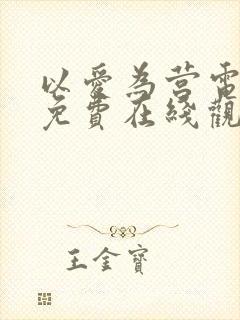 以愛為营電
免費在綫觀
王金寶